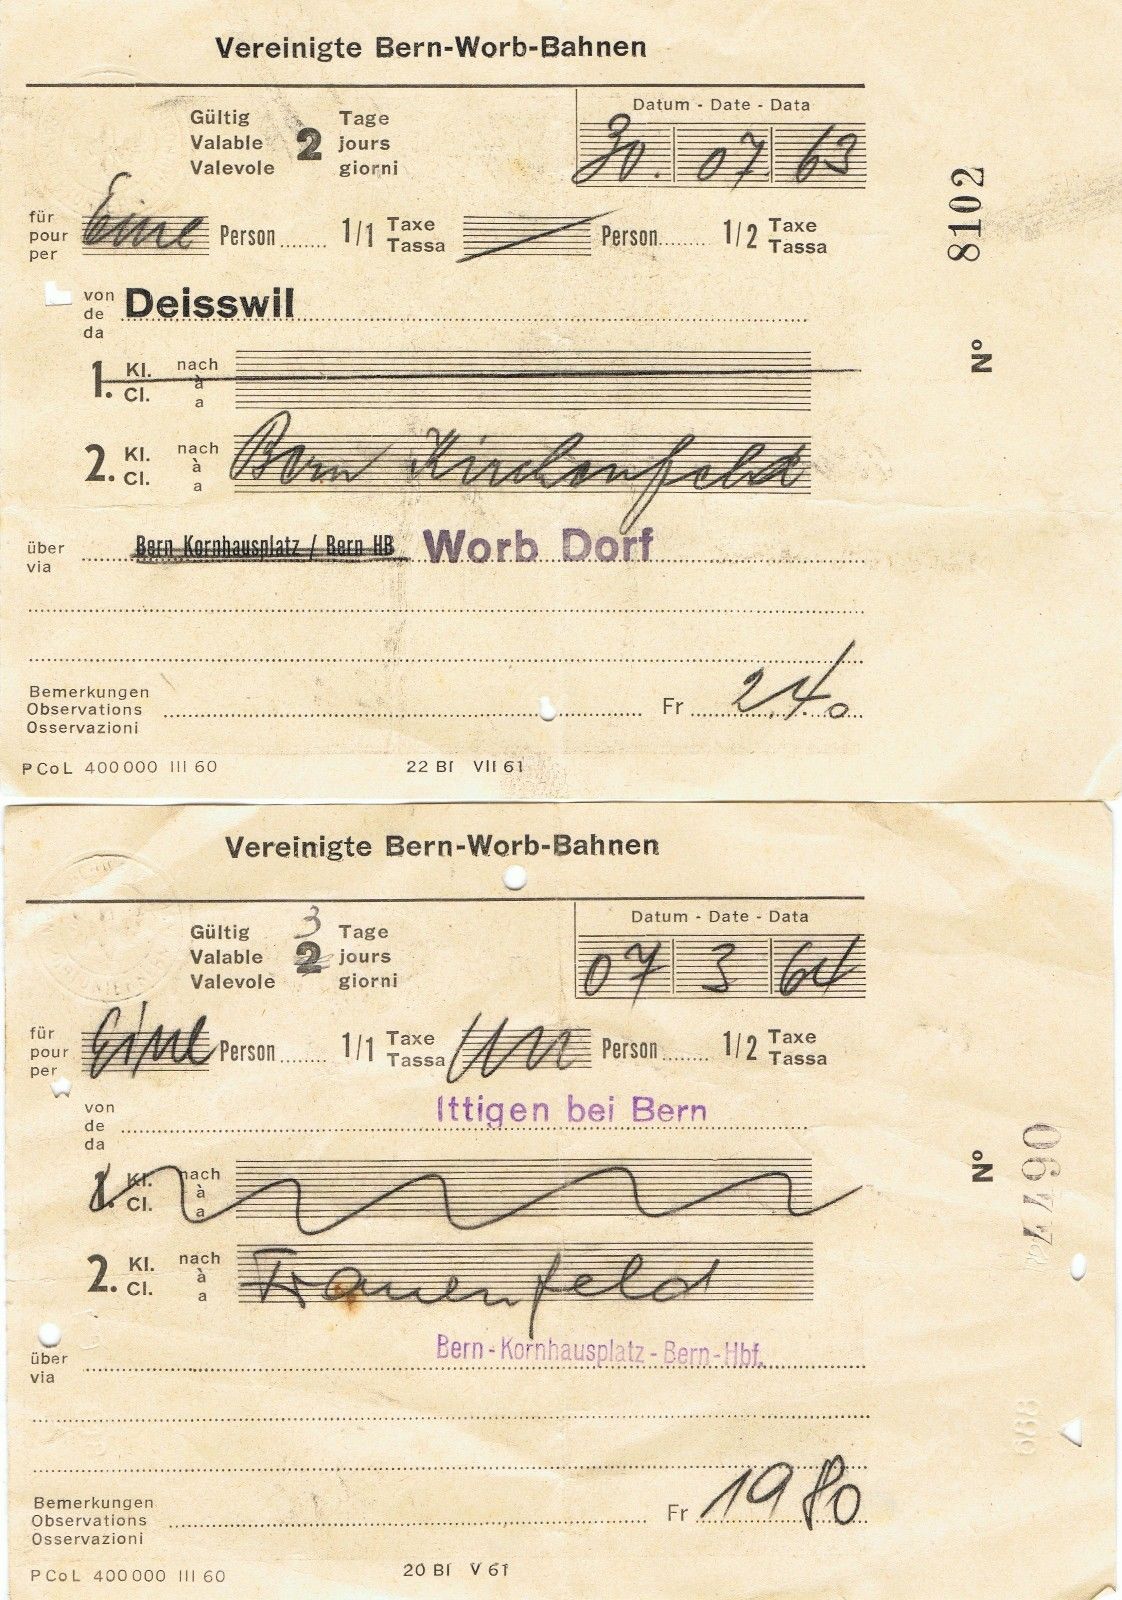 Vereinigte Bern-Worb-Bahnen
Datum - Date - Data
Gültig Tage
Valable 2 jours
Valevole giorni
30. 07. 63
8102
für
pour Eine Person....... 1/1 Taxe Tassa Person....... 1/2 Taxe Tassa
per
von Deisswil
de
da
Nº
1. Kl. Cl. nach à a
2. Kl. Cl. nach à a Bern Kirchenfeld
über Bern Kornhausplatz / Bern HB Worb Dorf
via
Bemerkungen
Observations Fr 2.40
Osservazioni
PCoL 400000 III 60 22 Bl VII 61
Vereinigte Bern-Worb-Bahnen
Datum - Date - Data
Gültig 3 Tage
Valable 2 jours
Valevole giorni
07 3 64
für
pour Eine Person....... 1/1 Taxe Tassa Person....... 1/2 Taxe Tassa
per
von Ittigen bei Bern
de
da
Nº
1. Kl. Cl. nach à a
2. Kl. Cl. nach à a Frauenfeld
Bern-Kornhausplatz-Bern-Hbf.
über
via
Bemerkungen
Observations Fr 19 80
Osservazioni
PCoL 400000 III 60 20 Bl V 61